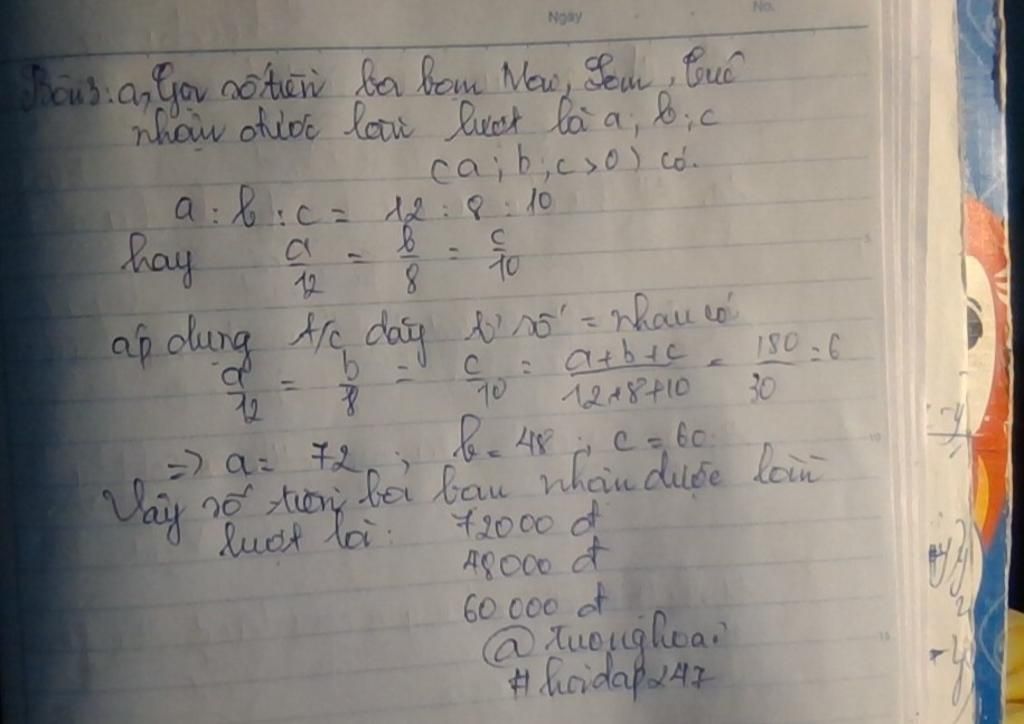 Ngày No.
Bài 3: a, Gọi số tiền ba bạn Mai, Lan, Cúc
nhận được lần lượt là a; b; c
(a; b; c > 0) có.
a : b : c = 12 : 8 : 10
hay a/12 = b/8 = c/10
áp dụng t/c dãy tỉ số = nhau có
a/12 = b/8 = c/10 = (a+b+c)/(12+8+10) = 180/30 = 6
=> a = 72 ; b = 48 ; c = 60.
Vậy số tiền ba bạn nhận được lần
lượt là: 72000 đ
48000 đ
60 000 đ
@
#hoidap247